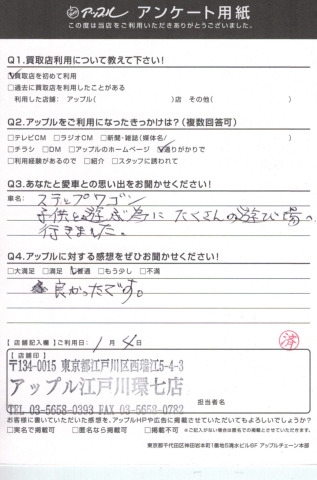 アップル アンケート用紙
この度は当店をご利用いただきありがとうございました。
Q1.買取店利用について教えて下さい!
☑買取店を初めて利用
□過去に買取店を利用したことがある
利用した店舗: アップル( )店 その他( )
Q2.アップルをご利用になったきっかけは?(複数回答可)
□テレビCM □ラジオCM □新聞・雑誌(媒体名/ )
□チラシ □DM □アップルのホームページ ☑通りがかりで
□利用経験があるので □紹介 □スタッフに誘われて
Q3.あなたと愛車との思い出をお聞かせください!
車名: ステップワゴン
子供と遊ぶ為にたくさんの遊び場へ
行きました。
Q4.アップルに対する感想をぜひお聞かせください!
□大満足 □満足 ☑普通 □もう少し □不満
良かったです。
済
【店舗記入欄】ご利用日: 1月4日
【店舗印】
〒134-0015 東京都江戸川区西瑞江5-4-3
アップル江戸川環七店
TEL 03-5658-0393 FAX 03-5658-0782
担当者名
お客様に書いていただいた感想を、アップルHPや広告に掲載させていただいてもよろしいでしょうか?
□実名で掲載可 □匿名なら掲載可 □掲載不可 ※ご記入がない場合は匿名での掲載とさせていただきます。
東京都千代田区神田岩本町1番地5清水ビル6F アップルチェーン本部